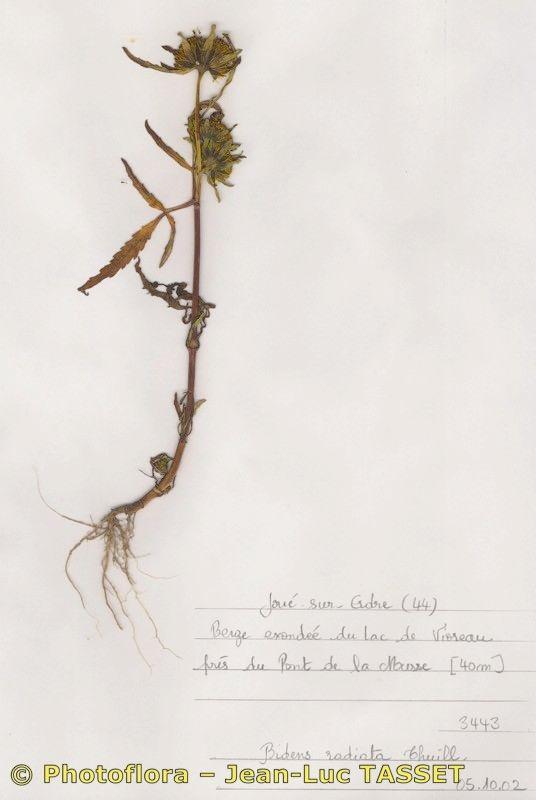 Joué-sur-Erdre (44)
Berge exondée du lac de Vioreau
près du Pont de la Musse [40m]
3443
Bidens radiata Thuill.
© Photoflora – Jean-Luc TASSET
05.10.02